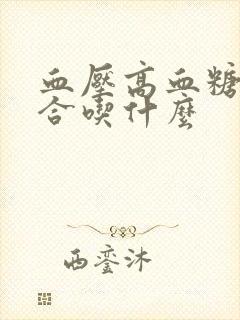 血壓高血糖
合喫什麼
西銮沐